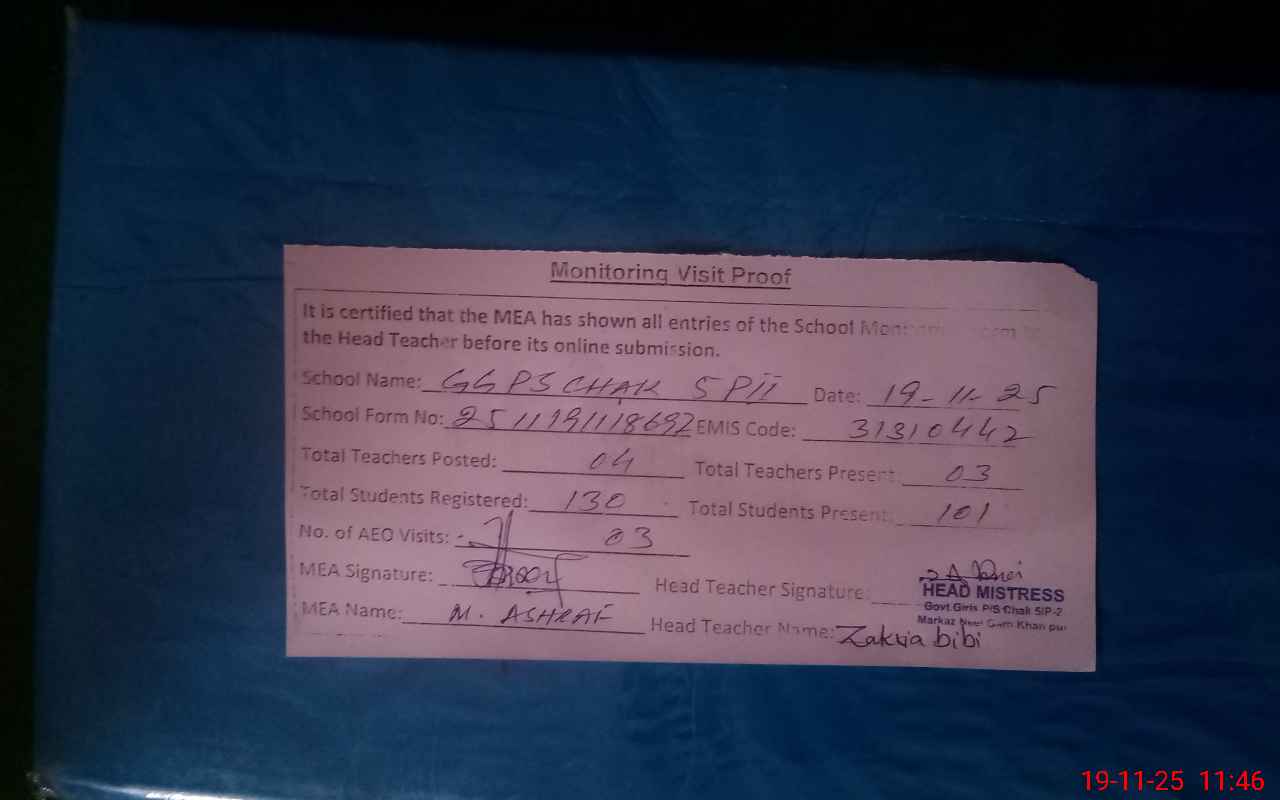 Monitoring Visit Proof
It is certified that the MEA has shown all entries of the School
the Head Teacher before its online submission.
School Name: GGPS CHAK 5PII Date: 19-11-25
School Form No: 25111911118692 EMIS Code: 31310442
Total Teachers Posted: 04 Total Teachers Present: 03
Total Students Registered: 130 Total Students Present: 101
No. of AEO Visits: 03
MEA Signature: Head Teacher Signature:
HEAD MISTRESS
Govt Girls P/S Chak 5/P-2
Markaz Khan pur
MEA Name: M. ASHRAF Head Teacher Name: Zakria bibi
19-11-25 11:46